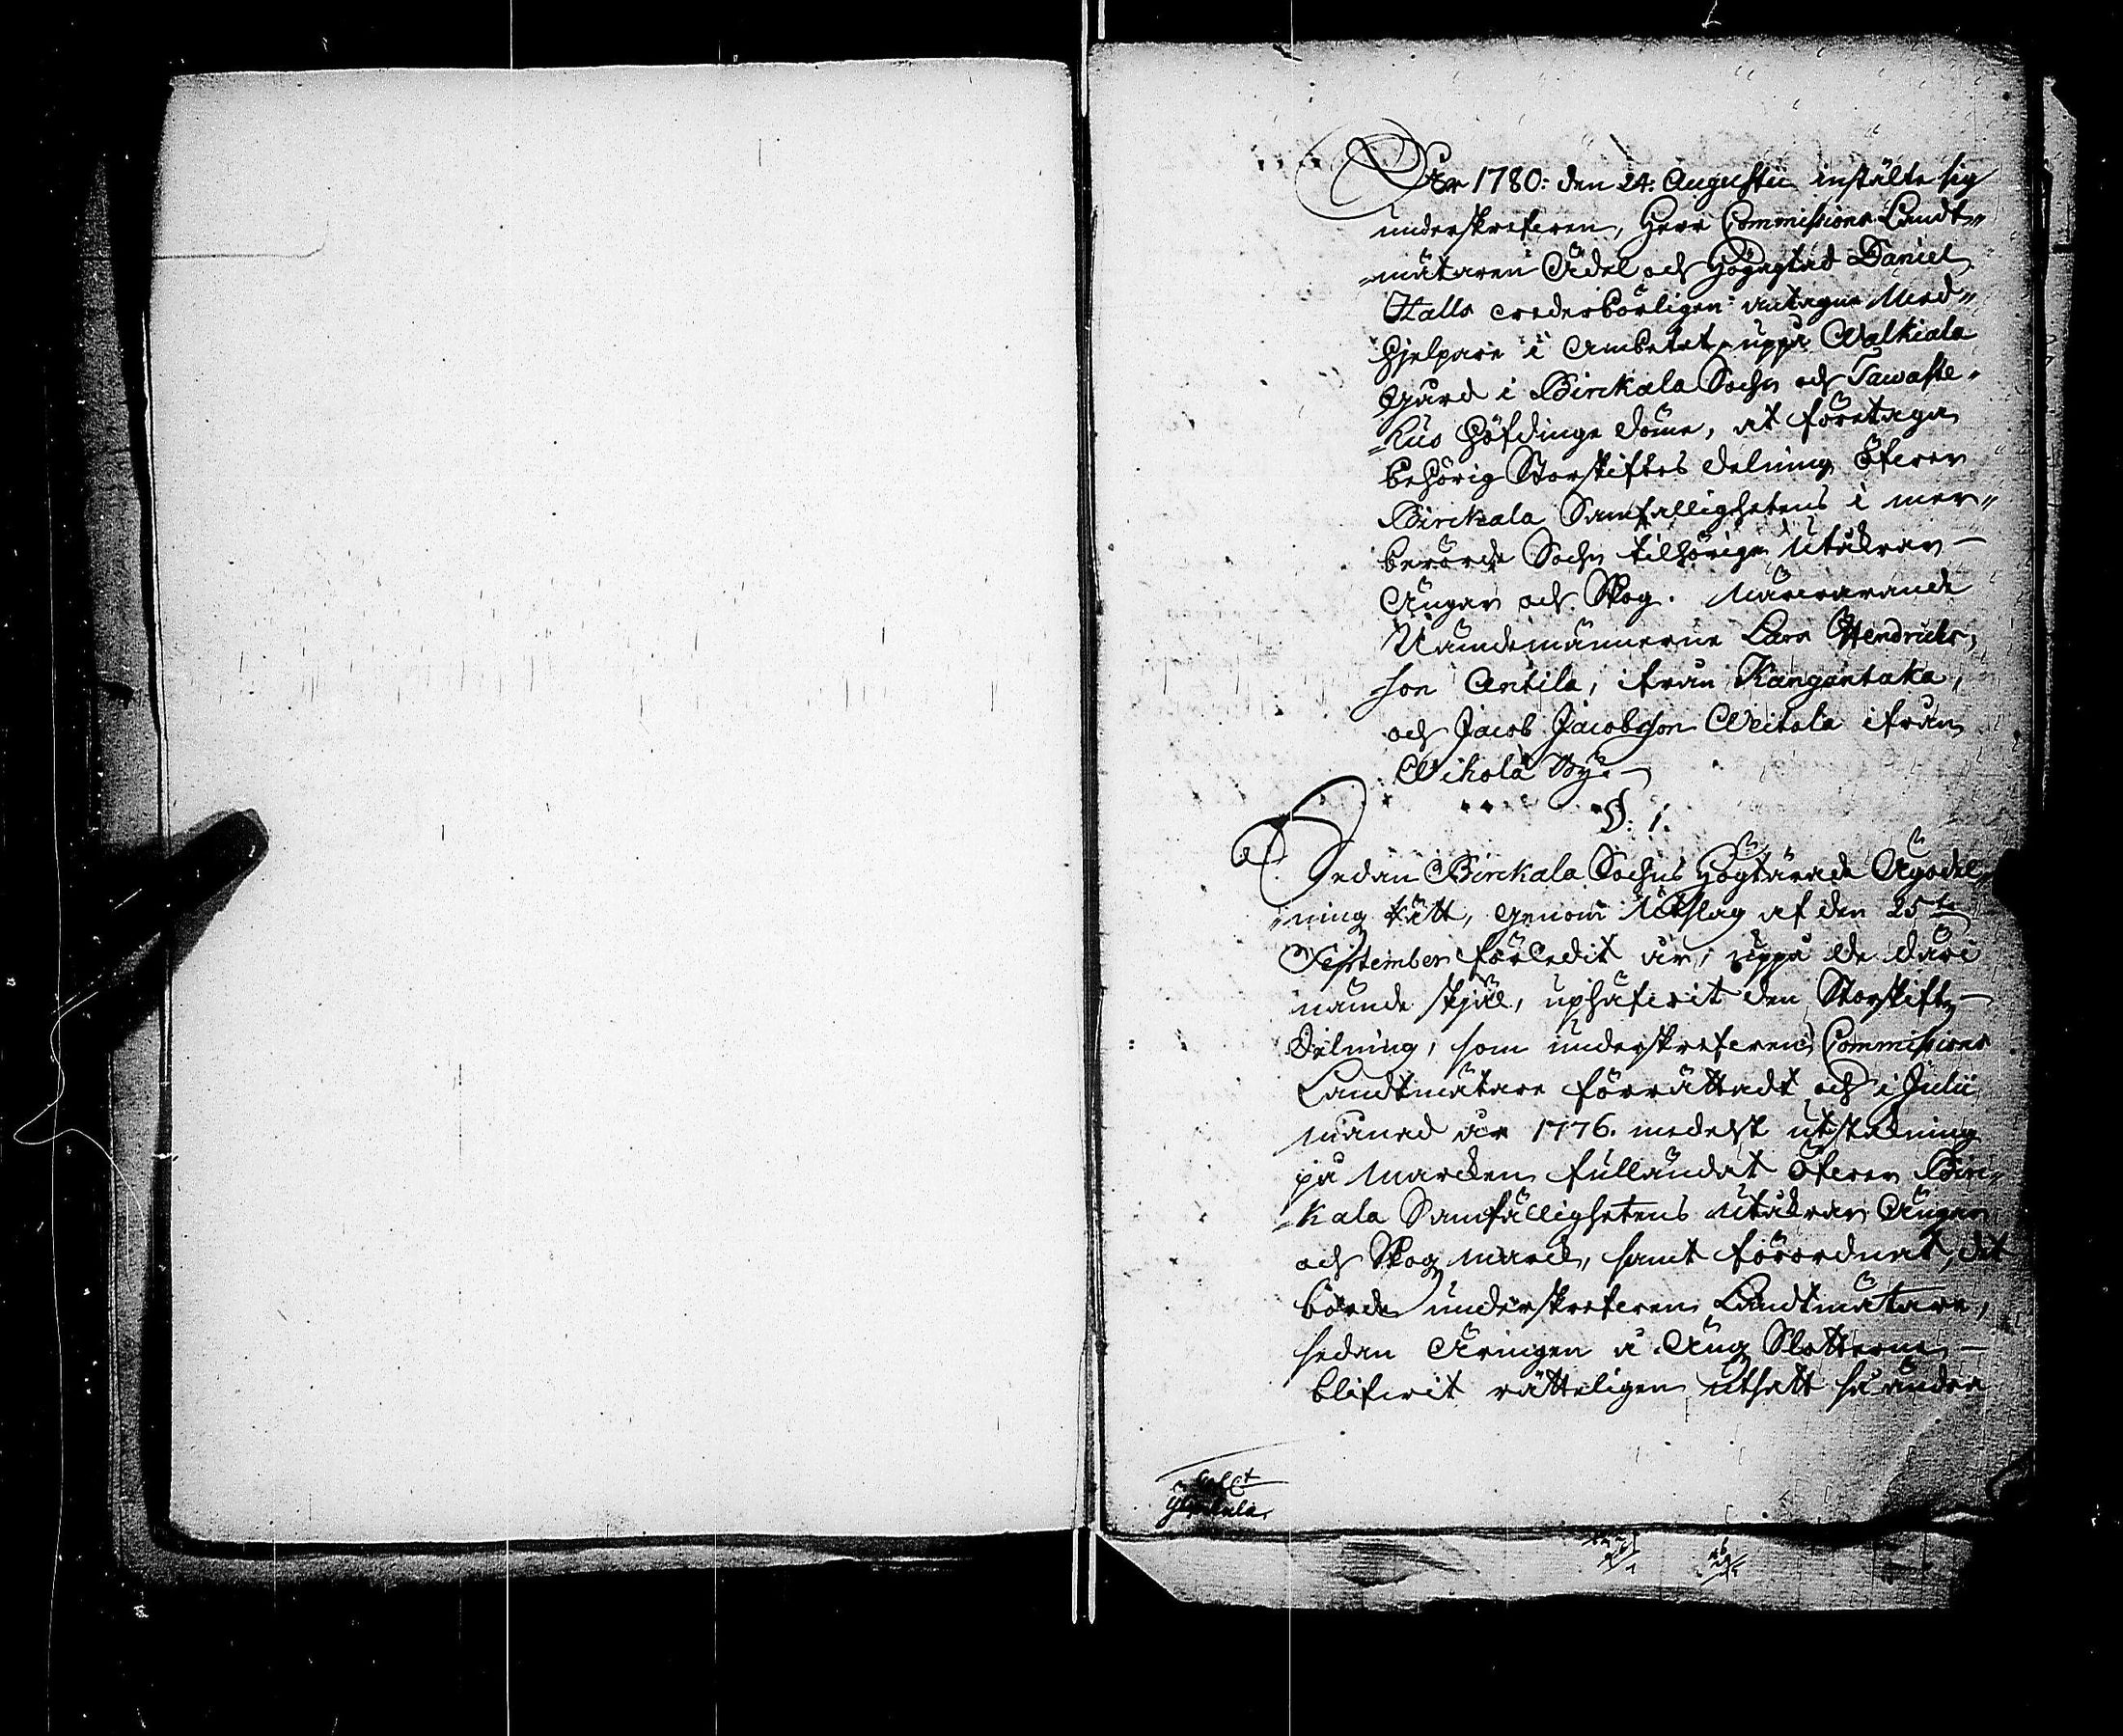 År 1780: den 24: Augustii instälte sig
underskrefven, Herr Commissions Landt-
-mätaren Ädel och Högagtad Daniel
Halls vederbörligen antagne Med-
hjelpare i Ämbetet, uppå Walkiala
Gård i Birckala Sochn och Tawaste-
-hus Höfdinge döme, at företaga
behörig Storskiftes delning öfver
Birckala Samfällighetens i mer-
berörde Sochn tilhörige Utåkrar
Ängar och Skog. Närvarande
Nämdemännerne Lars Hendrichs,
-son Antila, ifrån Kangantaka,
och Jacob Jacobsson Weitola ifrån
Wihola By.
§: 1.
Sedan Birckala Sochns Högtärade Ägodel-
-ning Rätt, genom Utslag af den 25te
September förledit år, uppå de däri
nämde skjäl, uphäfvit den Storskifts
Delning, som underskrefven Commissions
Landtmätare förrättadt och i Julii
månad år 1776. medelst utstakning
på Marcken fulländat öfver Birc-
-kala Samfällighetens Utåkrar Ängar
och Skog marck, samt förordnat, det
borde underskrefven Landtmätare,
sedan Äringen å Äng Slotterne
blifvit rätteligen utsatt få ändra
Ylöjärvi